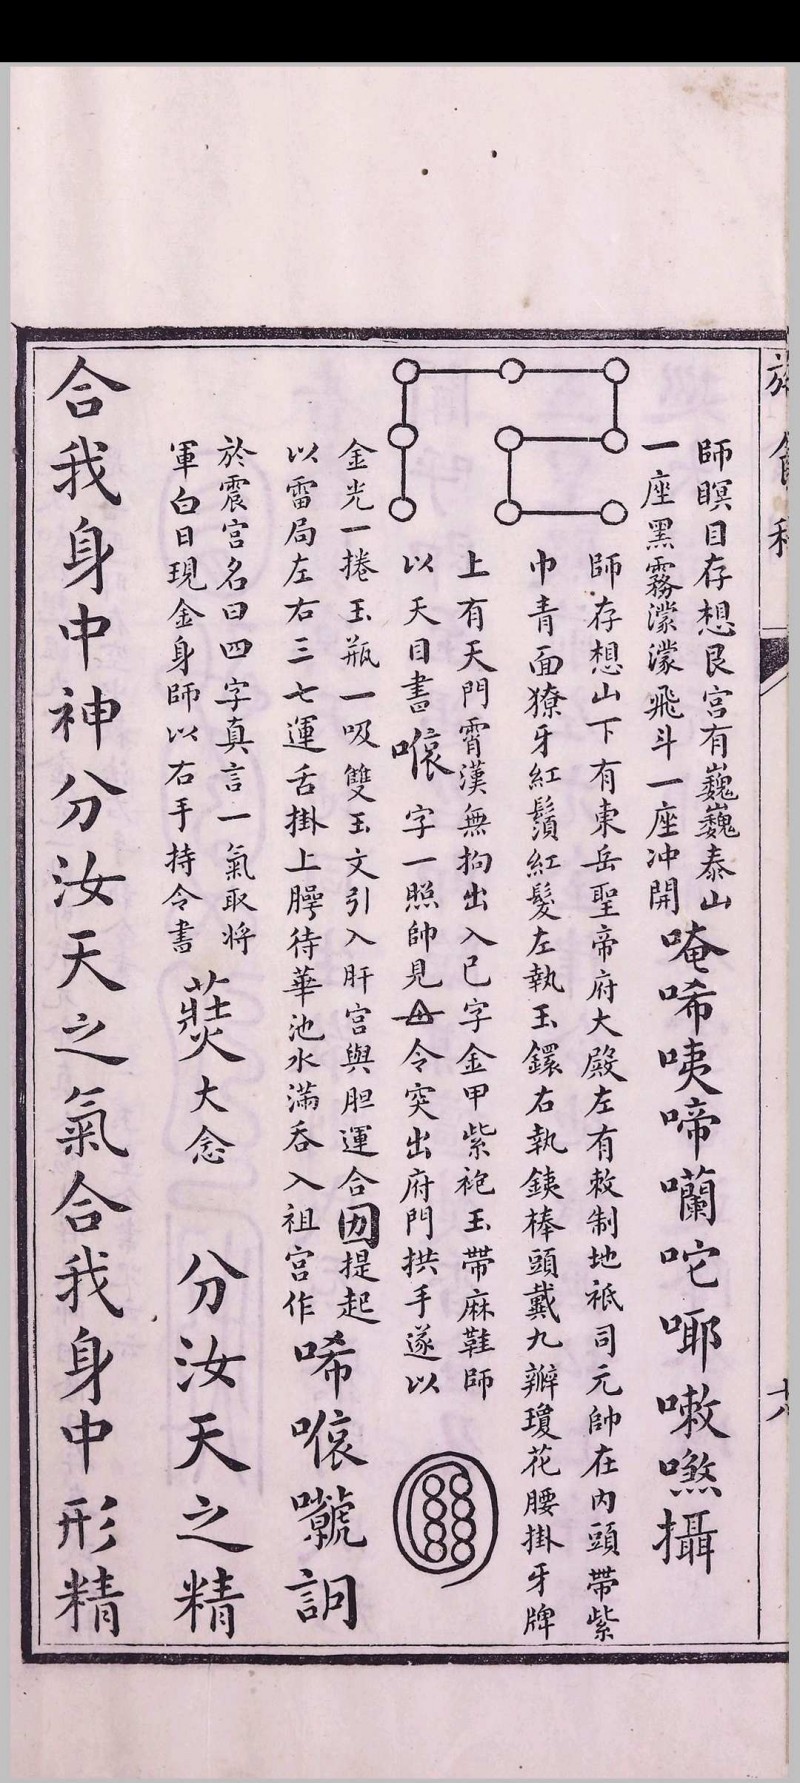 師瞑目存想艮宮有巍巍泰山
一座黑霧濛濛飛斗一座冲開
唵唏咦啼囒咜㖿嗽噫攝
師存想山下有東岳聖帝府大殿左有敕制地祇司元帥在內頭帶紫
巾青面獠牙紅鬚紅髮左執玉鐶右執鐵棒頭戴九瓣瓊花腰掛牙牌
上有天門霄漢無拘出入已字金甲紫袍玉帶麻鞋師
以天目書 字一照帥見 令突出府門拱手遂以
金光一捲玉瓶一吸雙玉文引入肝宮與胆運合 提起
以雷局左右三七運舌掛上腭待華池水滿吞入祖宮作
唏 詗
於震宮名曰四字真言一氣取將
軍白日現金身師以右手持令書
大念
分汝天之精
合我身中神分汝天之氣合我身中形精